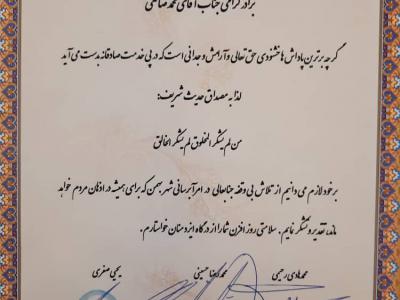 برادر گرامی جناب آقای محمد صالحی
گر چه برترین پاداش ها خشنودی حق تعالی و آرامش وجدانی است که در پی خدمت صادقانه بدست می آید
لذا به مصداق حدیث شریف:
من لم یشکر المخلوق لم یشکر الخالق
بر خود لازم می دانیم از تلاش بی وقفه جنابعالی در امر آبرسانی شهر بهمن که برای همیشه در اذهان مردم خواهد
ماند، تقدیر و تشکر نمایم. سلامتی روز افزن شما را از درگاه ایزد منان خواستارم.
محمدهادی رحیمی محمدرضا حسینی یحیی صفری